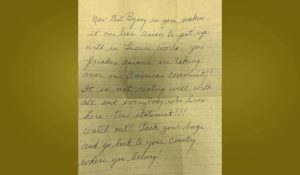 Now that Byong is gone makes
it one less Asian to put up
with in Leisure World. You
fricken Asians are taking
over our American community!!
It is not creating well with
all and everybody who lives
here - true statement!!!
watch out! Pack your bags
and go back to your country
where you belong!